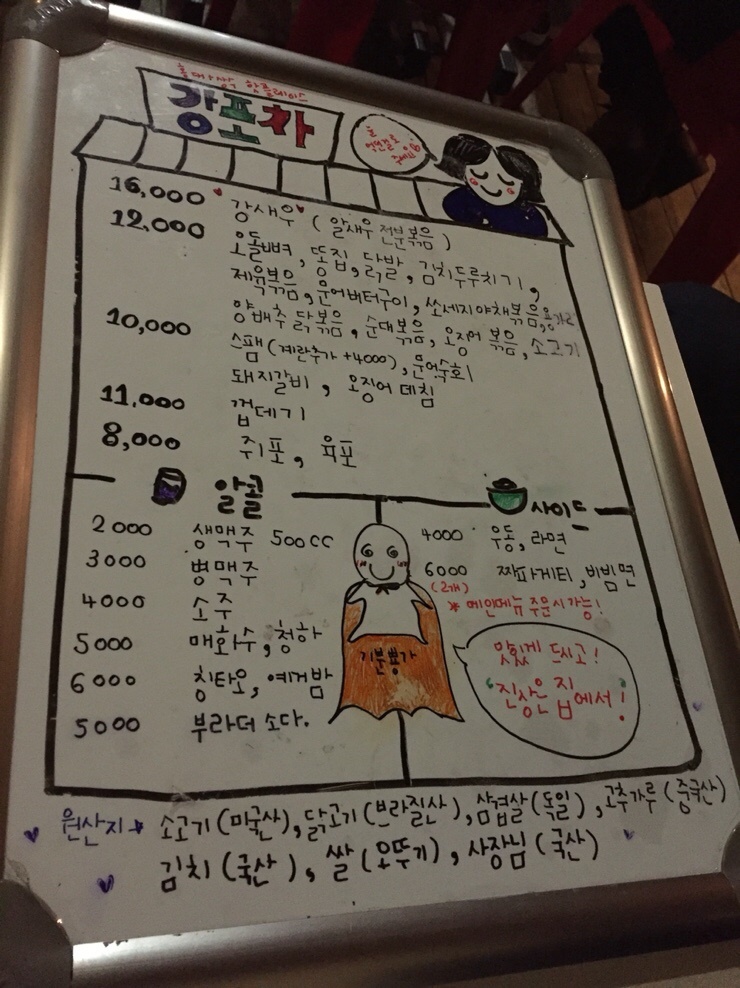 강포차
16,000 강새우 (알새우 전분볶음)
12,000 오돌뼈, 똥집, 닭발, 김치두루치기,
제육볶음, 문어버터구이, 쏘세지야채볶음,
양배추 닭볶음, 순대볶음, 오징어 볶음, 소고기
10,000 스팸(계란추가 +4000), 문어숙회
돼지갈비, 오징어 데침
11,000 껍데기
8,000 쥐포, 육포
알콜
2000 생맥주 500cc
3000 병맥주
4000 소주
5000 매화수, 청하
6000 칭타오, 예거밤
5000 부라더 소다.
사이드
4000 우동, 라면
6000 짜파게티, 비빔면
(2개)
* 메인메뉴 주문시 가능!
기분뿅가
맛있게 드시고!
"진상은 집에서!"
원산지 소고기(미국산), 닭고기(브라질산), 삼겹살(독일), 고추가루(중국산)
김치(국산), 쌀(오뚜기), 사장님(국산)